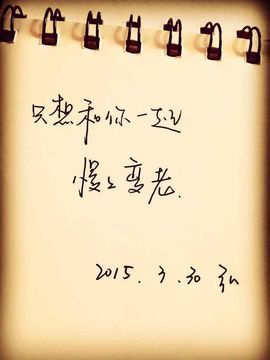 只想和你一起
慢々变老.
2015.3.30